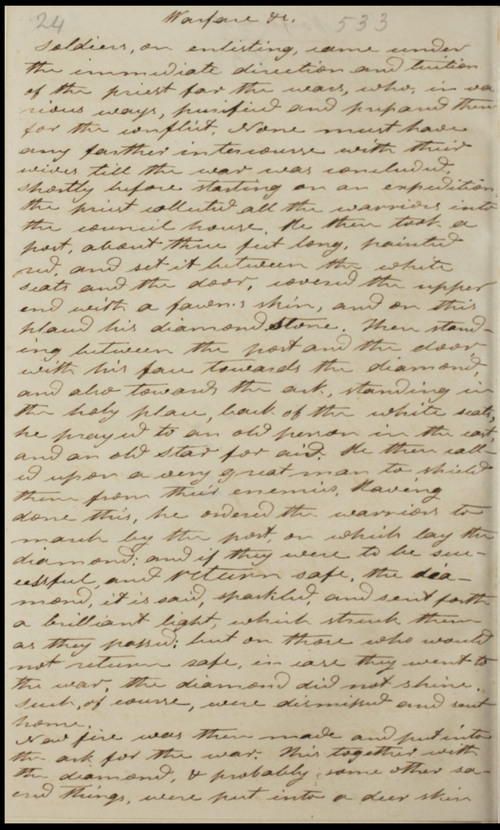 24 Warfare &c. 533
Soldiers, on enlisting, came under
the immediate direction and tuition
of the priest for the wars, who, in va
rious ways, purified and prepared them
for the conflict. None must have
any farther intercourse with their
wives till the war was concluded.
Shortly before starting on an expedition
the priest collected all the warriors into
the council house. He then took a
post, about three feet long, painted
red, and set it between the white
seats and the door, covered the upper
end with a fawn's skin, and on this
placed his diamond stone. Then stand-
ing between the post and the door
with his face towards the diamond,
and also towards the ark, standing in
the holy place, back of the white seats,
he prayed to an old person in the east
and an old star for aid. He then call-
ed upon a very great man to shield
them from their enemies. Having
done this, he ordered the warriors to
march by the post, on which lay the
diamond: and if they were to be suc-
cessful, and return safe, the dia-
mond, it is said, sparkled, and sent forth
a brilliant light, which struck them
as they passed; but on those who would
not return safe, in case they went to
the war, the diamond did not shine.
Such, of course, were dismissed and sent
home.
New fire was then made and put into
the ark for the war. This together with
the diamond, & probably some other sa-
cred things, were put into a deer skin